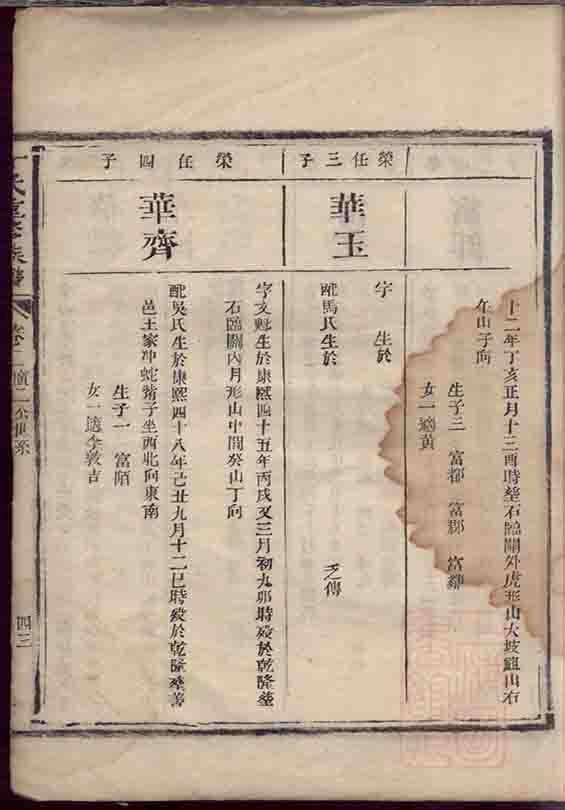 十二年丁亥正月十三酉時塟石臨關外虎形山大坡窰山右
午山子向
生子三 富都 富郡
女一適黄
榮任三子
華玉
字 生於
配馬氏生於
之傳
榮任四子
華齊
字文魁生於康熙四十五年丙戌又三月初九卯時歿於乾隆塟
石臨關內月形山中間癸山丁向
配吳氏生於康熙四十八年己丑九月十二巳時歿於乾隆塟善
邑王家冲蛇子坐西北向東南
生子一 富陌
女一適李敦吉
氏 族譜
卷二 二公世系
四三